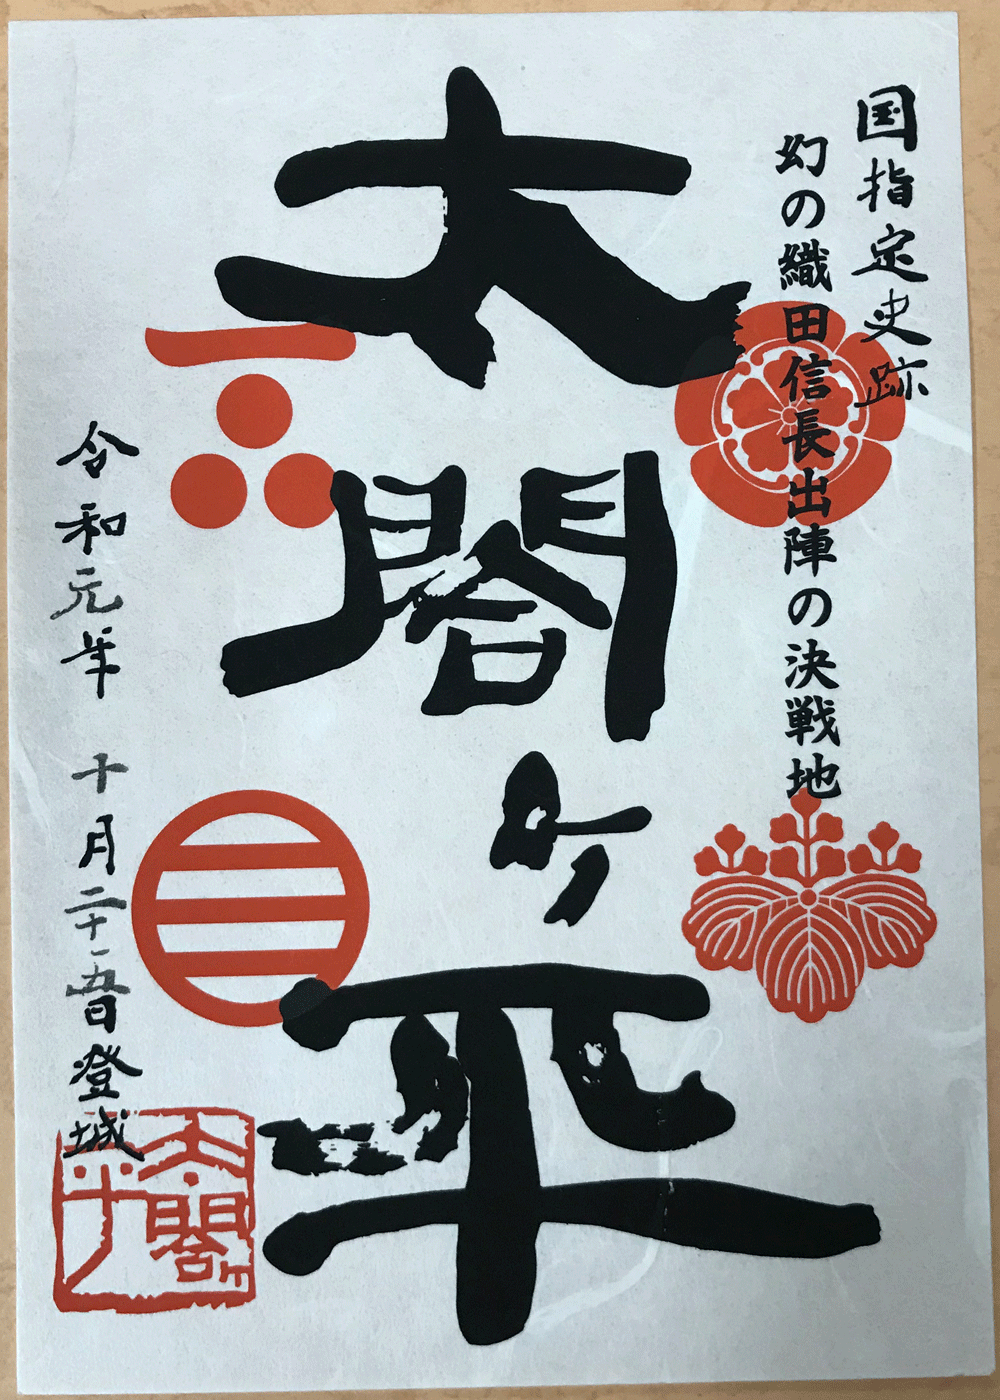 国指定史跡
幻の織田信長出陣の決戦地
太閤ヶ平
令和元年 十月二十五日登城
太閤ヶ平